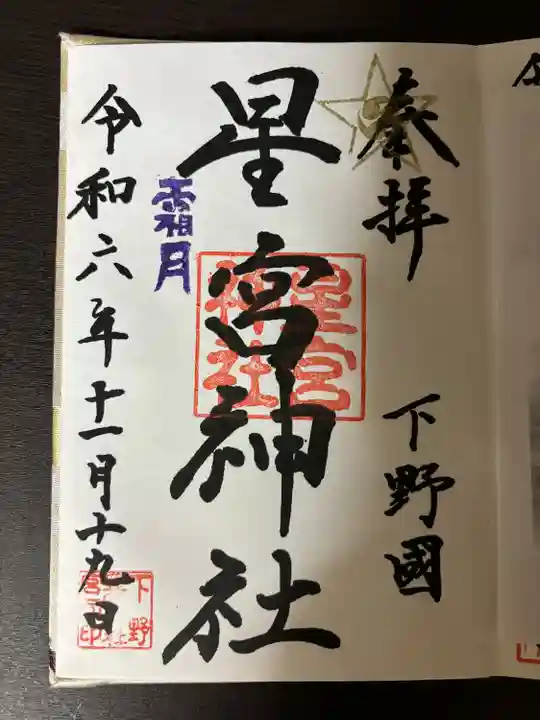 奉拝
下野國
星宮神社
星宮
神社
霜月
令和六年十一月十九日
下野